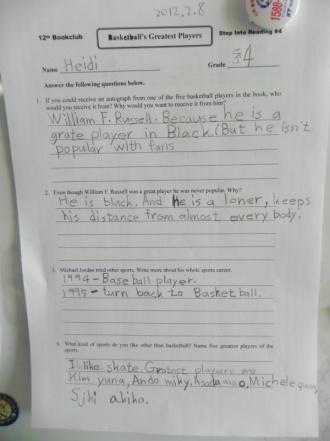 2012, 2. 8
12th Bookclub
Basketball's Greatest Players
Step Into Reading #4
Name Heidi
Grade 4
Answer the following questions below.
1. If you could receive an autograph from one of the five basketball players in the book, who
would you receive it from? Why would you want to receive it from him?
William F. Russell. Because he is a
grate player in Black.(But he isn't
popular with fans
2. Even though William F. Russell was a great player he was never popular. Why?
He is black. And He is a loner, keeps
his distance from almost every body.
3. Michael Jordan tried other sports. Write more about his whole sports career.
1994 - Baseball player.
1995 - turn back to Basketball.
4. What kind of sports you do like other than basketball? Name five greatest players of the
sports.
I like skate. Gratest players are
Kim yuna, Ando miky, Asada mao, Michele quan,
akiko.
1588